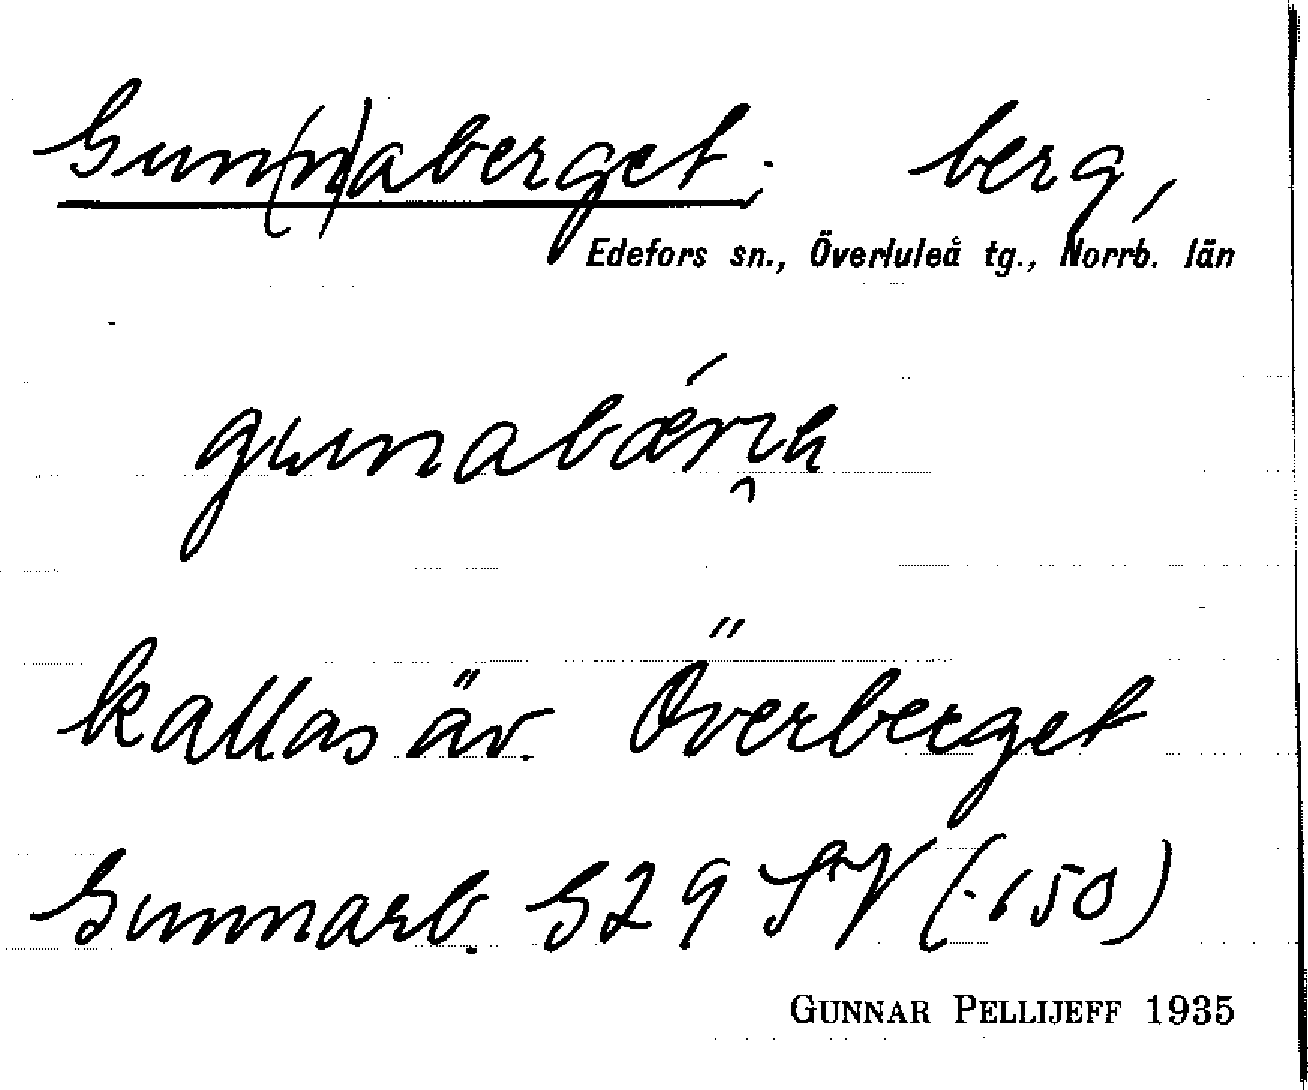 Gun(n)aberget, berg,
Edefors sn., Överluleå tg., Norrb. län
gunabærɪk
kallas äv. Överberget
Gunnarb. G29 SV (.150)
GUNNAR PELLIJEFF 1935